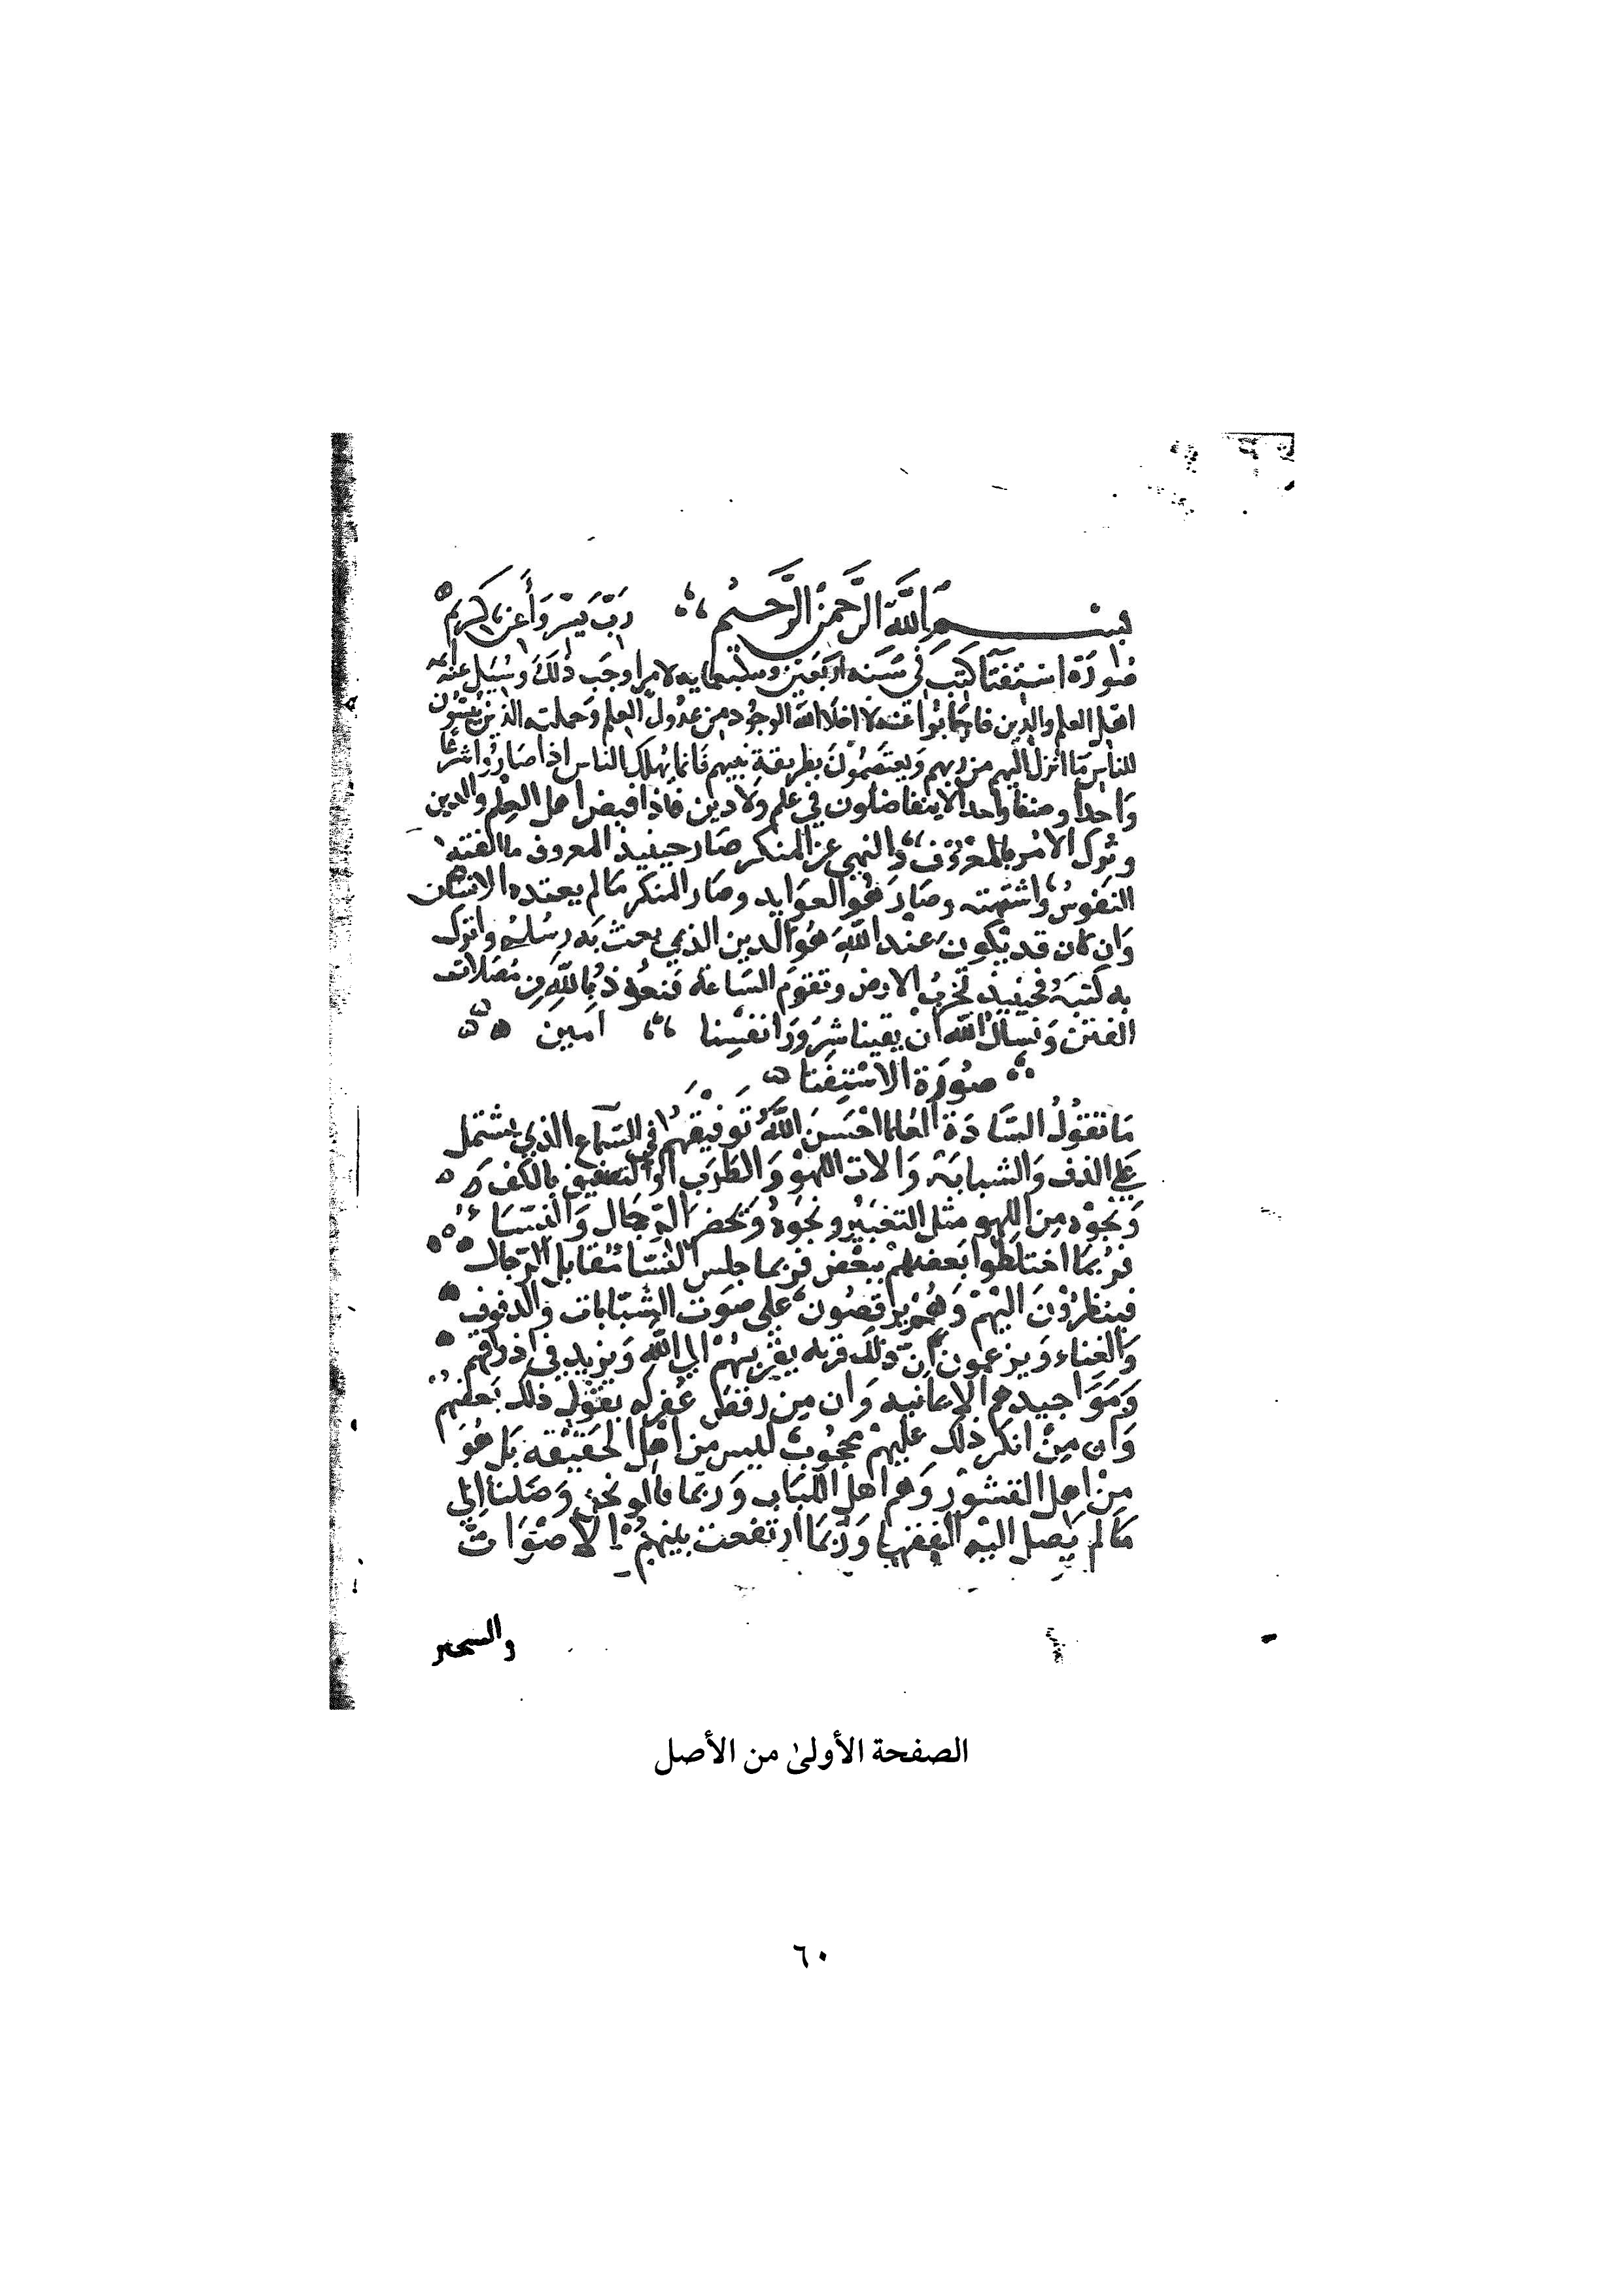 بسم الله الرحمن الرحيم رب يسر وأعن يا كريم
صورة استفتا كتب في سنة اربعين وسبعمايه لامر اوجب ذلك وسيل عنه ائمه
اهل العلم والدين فاجابوا عنه لا اخلا الله الوجود من عدول العلم وحملته الذين يبينون
للناس ما انزل اليهم من ربهم ويعتصمون بطريقة نبيهم فانما يهلك الناس اذا صاروا شرعا
واحدا وصنفا واحدا لا يتفاضلون في علم ولا دين فاذا قبض اهل العلم والدين
وترك الامر بالمعروف والنهي عن المنكر صار حينيذ المعروف ما الفته
النفوس واشتهته وصار هو العوايد وصار المنكر ما لم يعتده الانسان
وان كان قد يكون عند الله هو الدين الذي بعث به رسله وانزل
به كتبه فحينيذ تخرب الارض وتقوم الساعة فنعوذ بالله من مضلات
الفتن ونسال الله ان يقينا شرور انفسنا امين
صورة الاستفتا
ما تقول السادة العلما احسن الله توفيقهم في السماع الذي يشتمل
على الدف والشبابة والات اللهو والطرب او التصفيق بالكف
ونحوه من اللهو مثل التغبير ونحوه وتحضر الرجال والنساء
فربما اختلطوا بعضهم ببعض فربما جلس النسا مقابل الرجال
فينظرون اليهم وهم يرقصون على صوت الشبابات والدفوف
والغناء ويزعمون ان ذلك قربه يقربهم الي الله ويزيد في اذواقهم
ومواجيدهم الايمانيه وان من رقص غفر له يقول ذلك بعضهم
وان من انكر ذلك عليهم محجوب ليس من اهل الحقيقه بل هو
من اهل القشور وهم اهل اللباب وربما قالو نحن وصلنا الي
ما لم يصل اليه الفقها وربما ارتفعت بينهم الاصوات
الصفحة الأولىٰ من الأصل
٦٠